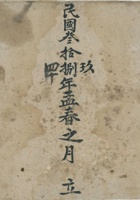 民國叁拾捌年孟春之月 立
玖
四十